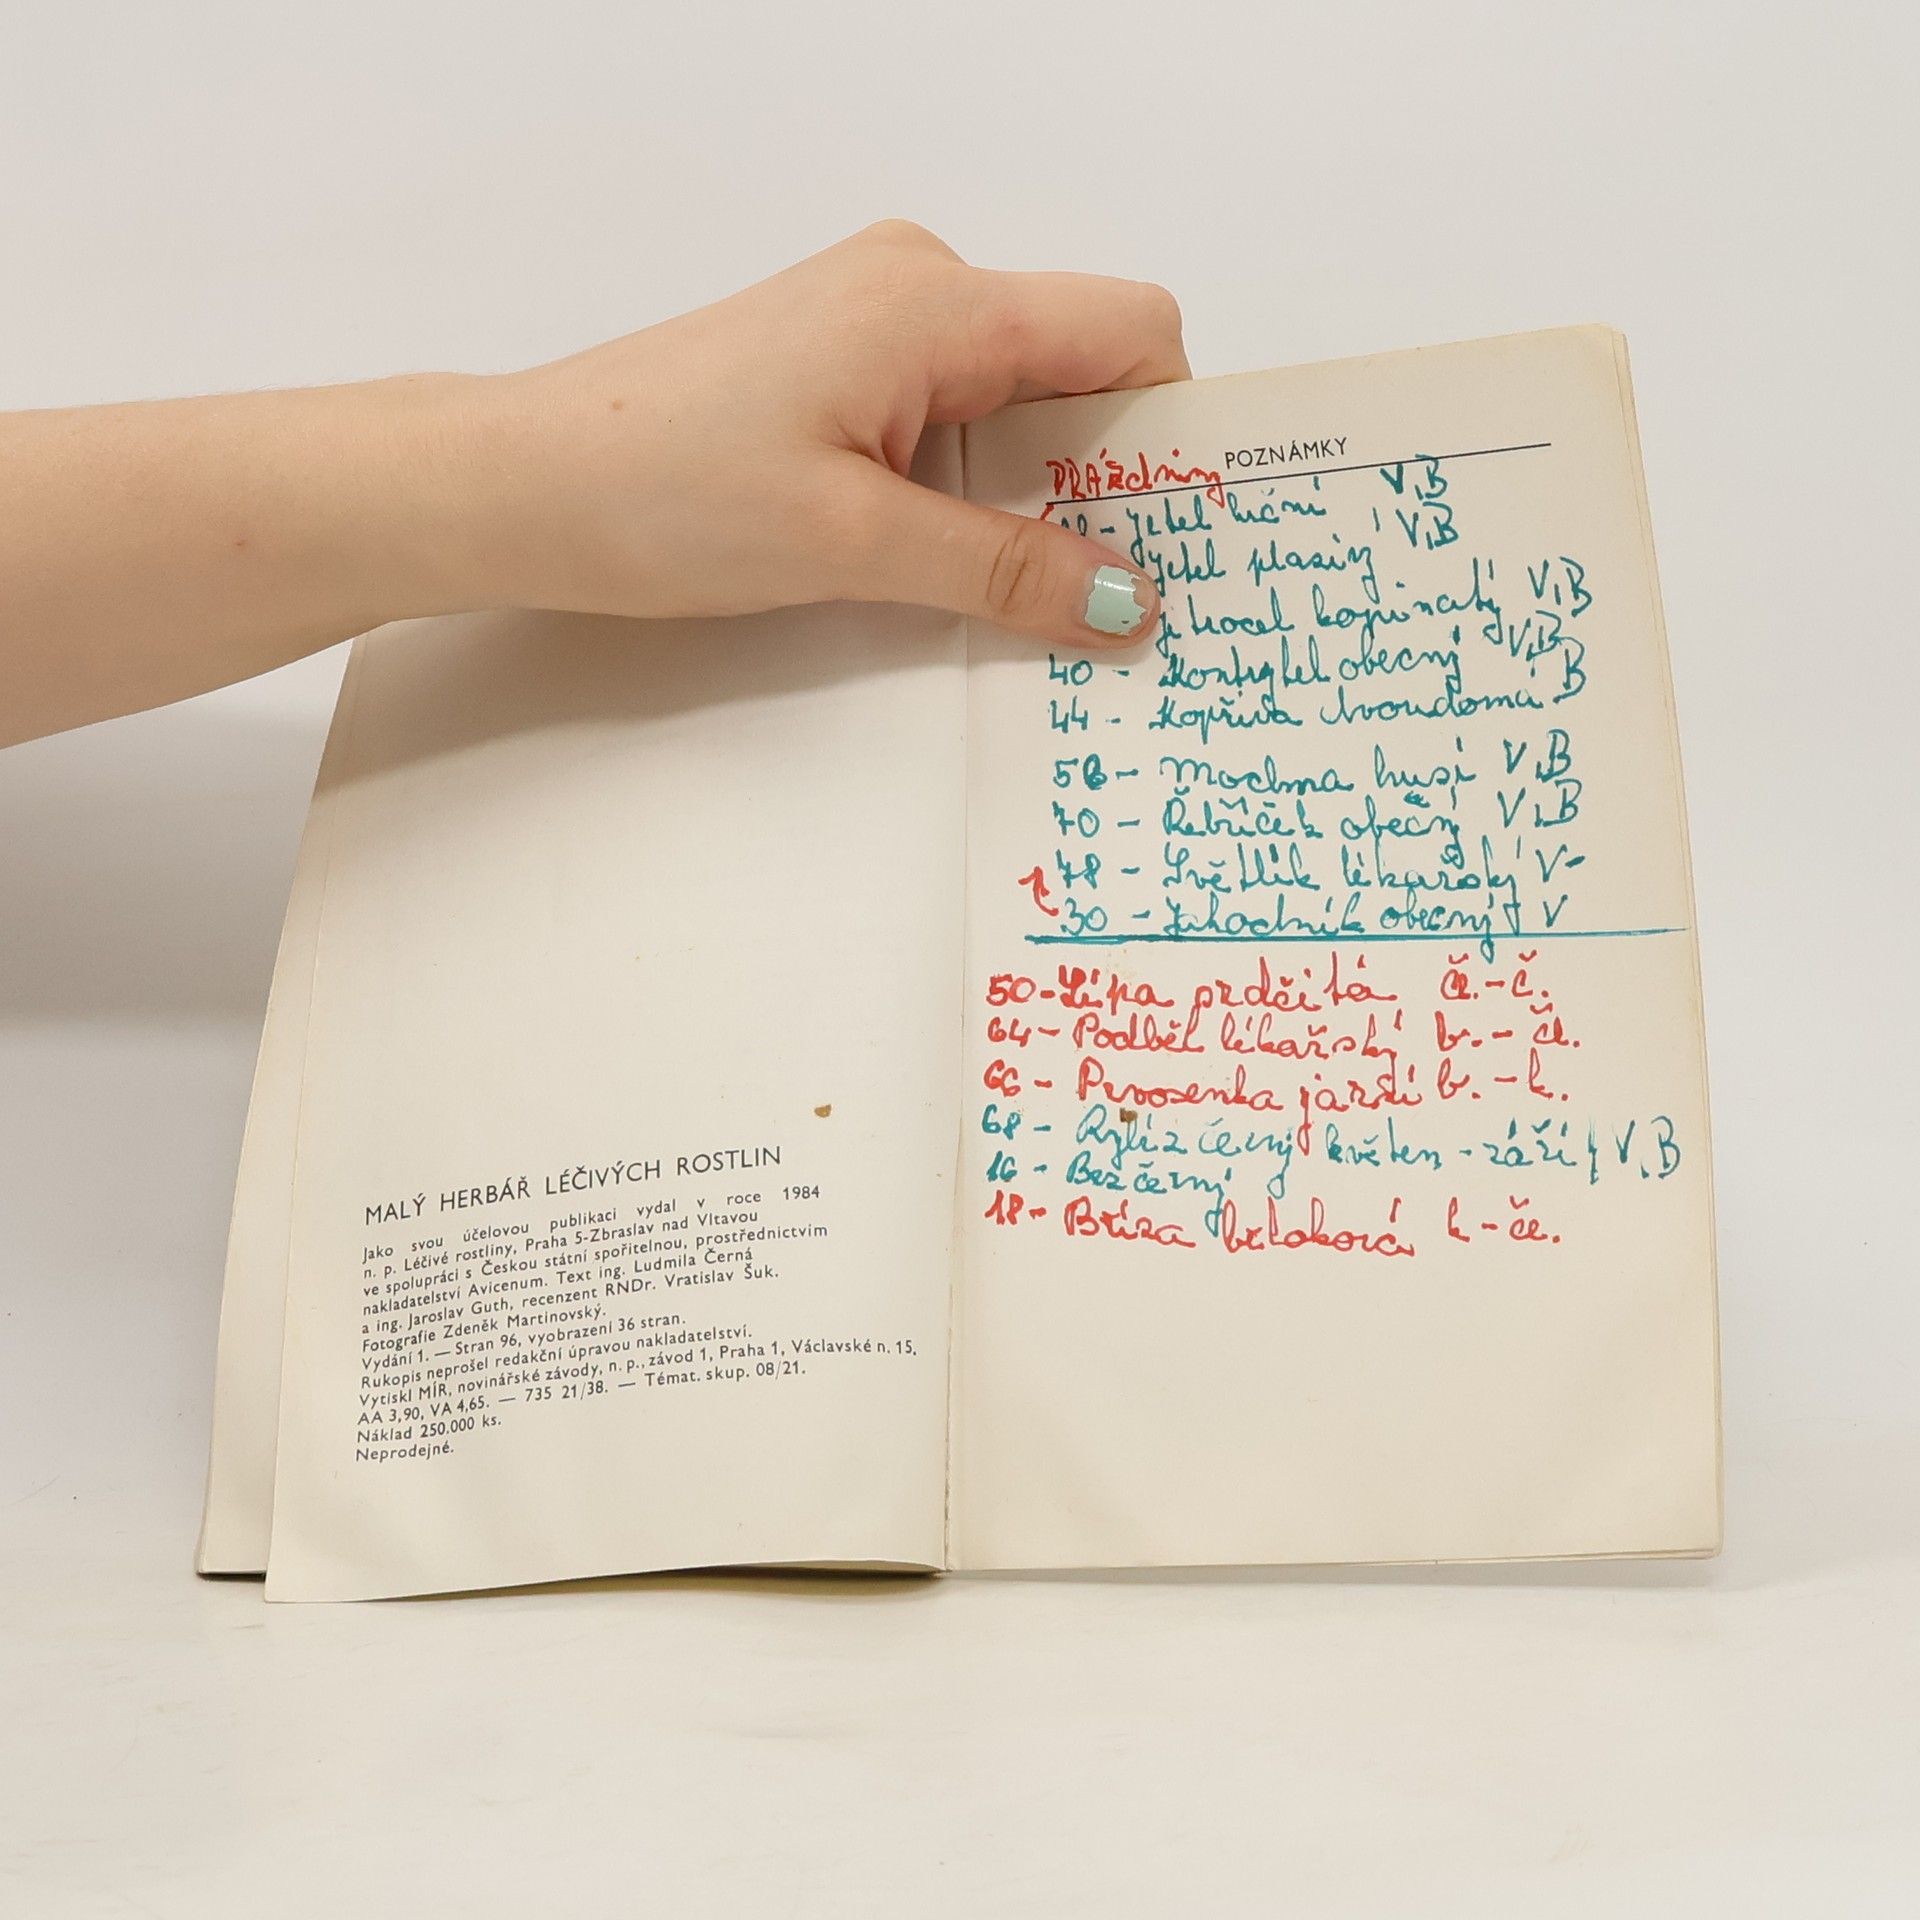 MALÝ HERBÁŘ LÉČIVÝCH ROSTLIN
Jako svou účelovou publikaci vydal v roce 1984
n. p. Léčivé rostliny, Praha 5-Zbraslav nad Vltavou
ve spolupráci s Českou státní spořitelnou, prostřednictvím
nakladatelství Avicenum. Text ing. Ludmila Černá
a ing. Jaroslav Guth, recenzent RNDr. Vratislav Šuk.
Fotografie Zdeněk Martinovský.
Vydání 1. — Stran 96, vyobrazení 36 stran.
Rukopis neprošel redakční úpravou nakladatelství.
Vytiskl MÍR, novinářské závody, n. p., závod 1, Praha 1, Václavské n. 15.
AA 3,90, VA 4,65. — 735 21/38. — Témat. skup. 08/21.
Náklad 250.000 ks.
Neprodejné.
POZNÁMKY
PRÁzdniny
- Jetel luční V,B
Jetel plazivý V,B
jitrocel kopinatý V,B
40 - Kontryhel obecný V,B
44 - Kopřiva dvoudomá B
56 - Mochna husí V,B
70 - Řebříček obecný V,B
78 - Světlík lékařský V-
30 - Jahodník obecný V
50 - Lípa srdčitá č.-č.
64 - Podběl lékařský b. - č.
66 - Prvosenka jarní b. - k.
68 - Rybíz černý květen - září V,B
16 - Bez černý
18 - Bříza bělokorá k - če.